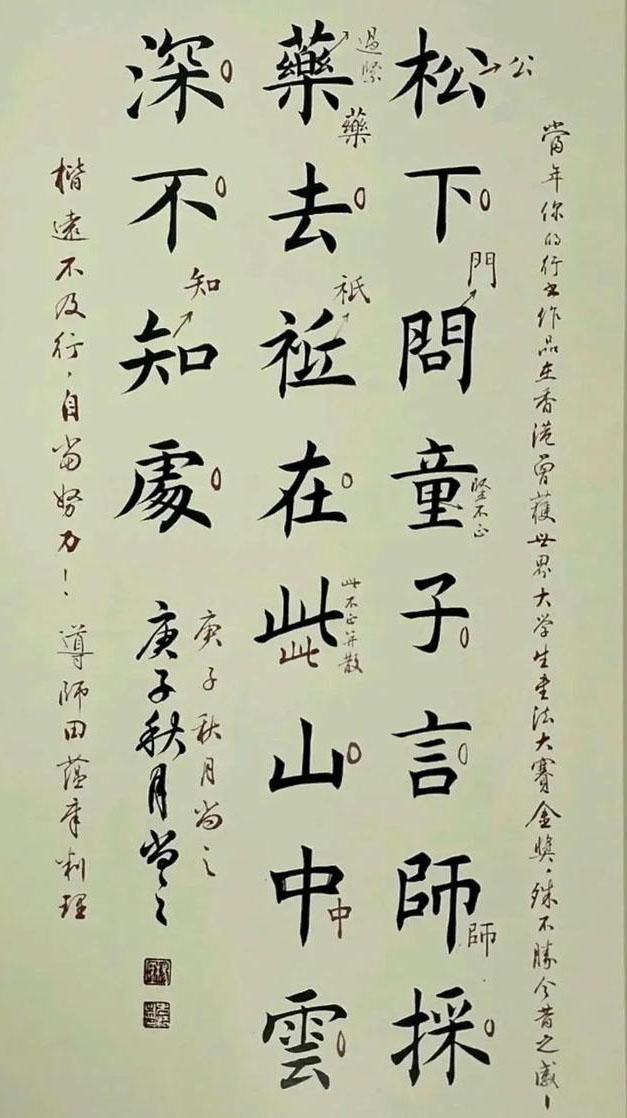 當年你的行书作品在香港曾獲世界大学生书法大賽金奬,殊不勝今昔之感!
松下問童子言師採
公
門
竖不正
師
藥去祗在此山中雲
過緊
藥
祇
此不正并散
此
中
深不知處
知
庚子秋月尚之
庚子秋月尚之
楷遠不及行,自当努力!導師田蕴章